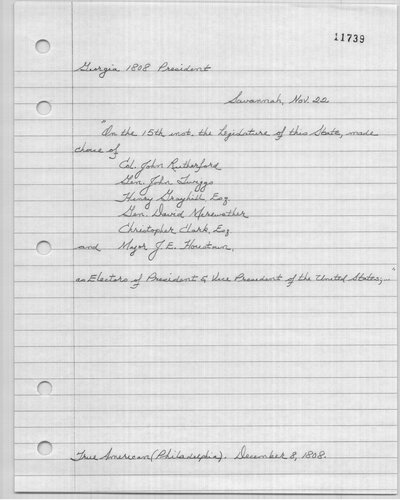 11739
Georgia 1808 President
Savannah, Nov. 22
"On the 15th inst. the Legislature of this State, made
choice of
Col. John Rutherford
Gen. John Twiggs
Henry Graybill, Esq.
Gen. David Merewether
Christopher Clark, Esq
and Major J. E. Houstoun,
as Electors of President & Vice President of the United States;..."
True American (Philadelphia). December 8, 1808.